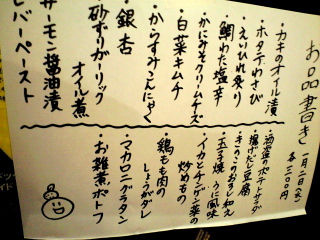 お品書き
一月二日(火)
各三〇〇円
・カキのオイル漬
・ホタテわさび
・えいひれ炙り
・鯛わた塩辛
・かにみそクリームチーズ
・白菜キムチ
・からすみこんにゃく
・銀杏
砂ずりガーリック
オイル煮
サーモン醤油漬
レバーペースト
・油淋のポテトサラダ
・揚げだし豆腐
・きのこのおろし和え
・玉子焼 うに風味
・イカとチンゲン菜の
炒めもの
・鶏もも肉の
しょうがダレ
・マカロニグラタン
・お雑煮ポトフ